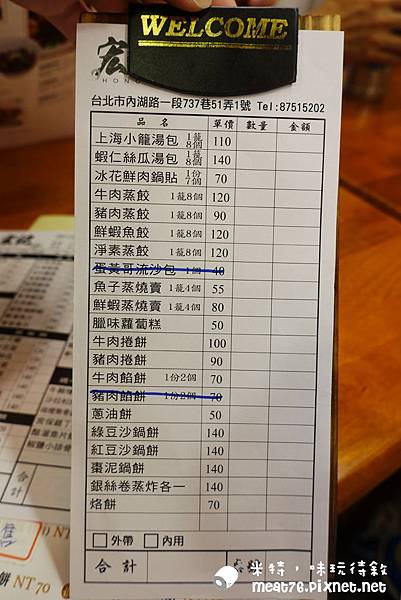 WELCOME
宏
HONG
台北市內湖路一段737巷51弄1號 Tel:87515202
品 名 單價 數量 金額
上海小籠湯包 1籠8個 110
蝦仁絲瓜湯包 1籠8個 140
冰花鮮肉鍋貼 1份7個 70
牛肉蒸餃 1籠8個 120
豬肉蒸餃 1籠8個 90
鮮蝦魚餃 1籠8個 120
淨素蒸餃 1籠8個 120
蛋黃哥流沙包 1個 40
魚子蒸燒賣 1籠4個 55
鮮蝦蒸燒賣 1籠4個 80
臘味蘿蔔糕 50
牛肉捲餅 100
豬肉捲餅 90
牛肉餡餅 1份2個 70
豬肉餡餅 1份2個 70
蔥油餅 50
綠豆沙鍋餅 140
紅豆沙鍋餅 140
棗泥鍋餅 140
銀絲卷蒸炸各一 140
烙餅 70
外帶 內用
合計
合計
餅 NT 70
米特,味玩待敘
meat76.pixnet.net